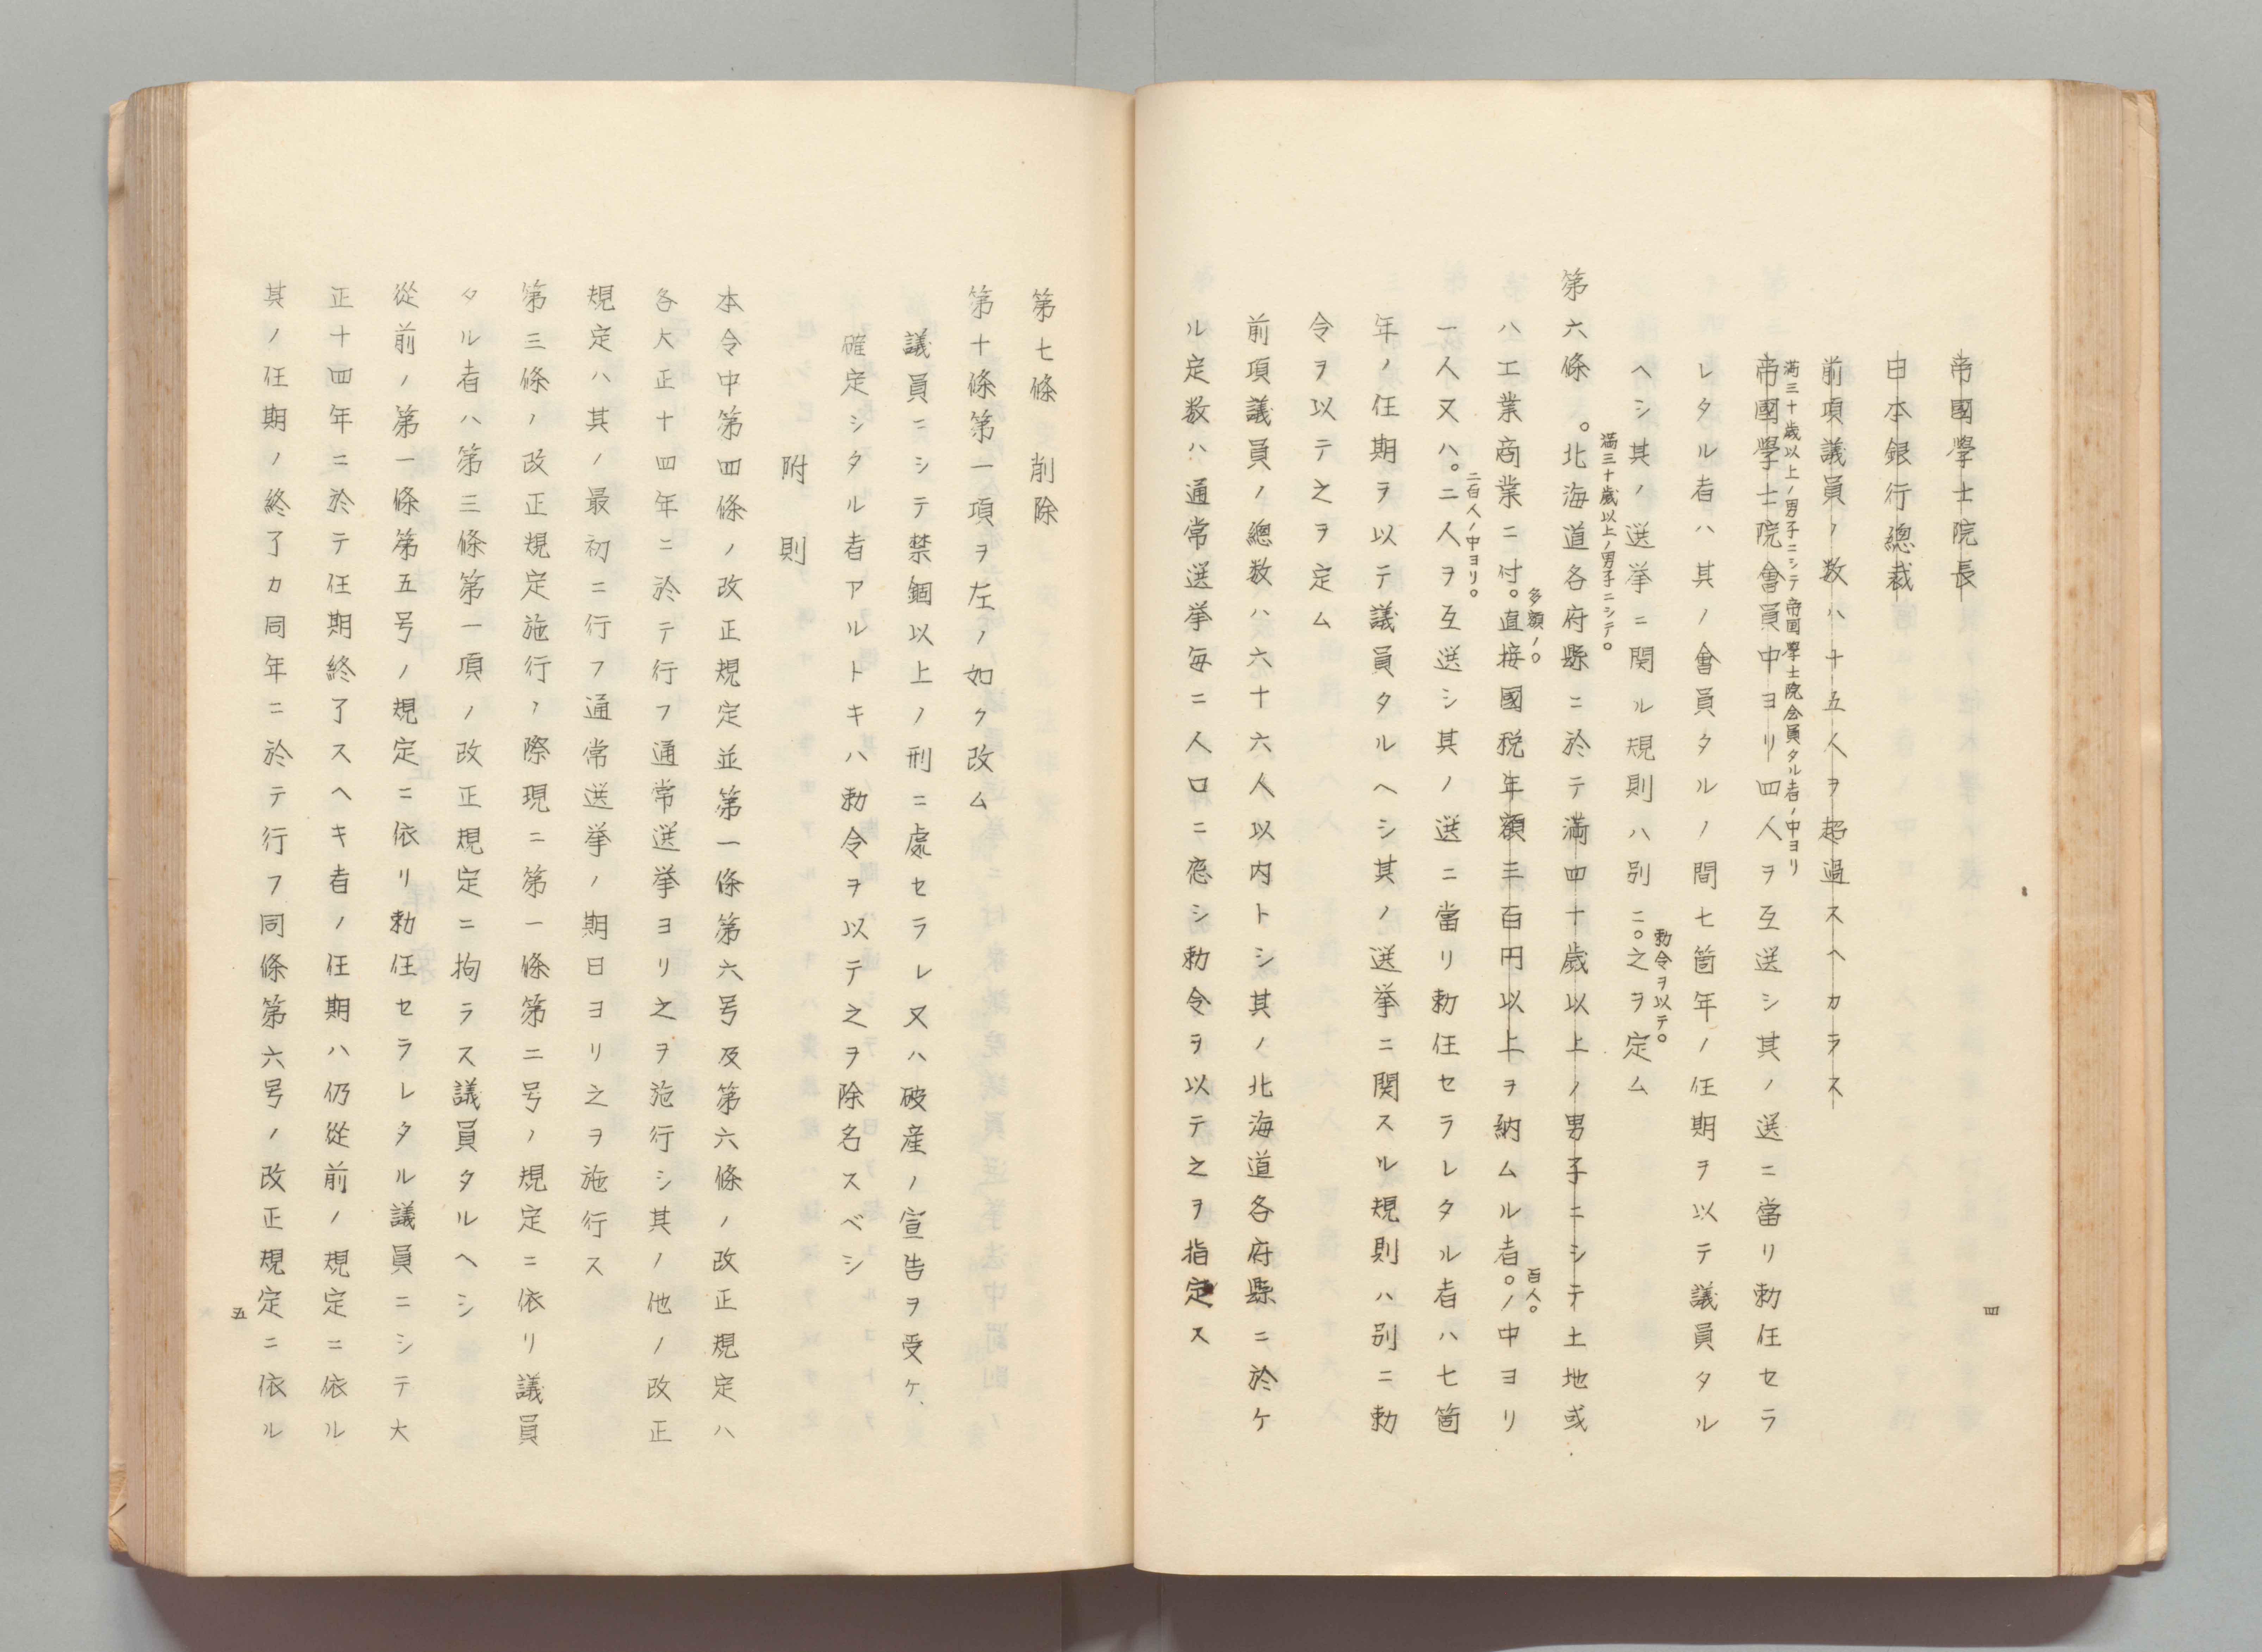 帝國學士院長
日本銀行總裁
前項議員ノ数ハ十五人ヲ超過スヘカラス
満三十歳以上ノ男子ニシテ帝国學士院会員タル者ノ中ヨリ
帝國學士院會員中ヨリ四人ヲ互選シ其ノ選ニ當リ勅任セラ
レタル者ハ其ノ會員タルノ間七箇年ノ任期ヲ以テ議員タル
勅令ヲ以テ。
ヘシ其ノ選挙ニ関ル規則ハ別ニ。之ヲ定ム
満三十歳以上ノ男子ニシテ。
第六條 。北海道各府縣ニ於テ満四十歳以上ノ男子ニシテ土地或
多額ノ。
百人。
ハ工業商業ニ付。直接國税年額三百円以上ヲ納ムル者。ノ中ヨリ
二百人ノ中ヨリ。
一人又ハ。二人ヲ互選シ其ノ選ニ當リ勅任セラレタル者ハ七箇
年ノ任期ヲ以テ議員タルヘシ其ノ選挙ニ関スル規則ハ別ニ勅
令ヲ以テ之ヲ定ム
前項議員ノ總数ハ六十六人以内トシ其ノ北海道各府縣ニ於ケ
ル定数ハ通常選挙毎ニ人口ニ應シ勅令ヲ以テ之ヲ指定ス
四
第七條 削除
第十條第一項ヲ左ノ如ク改ム
議員ニシテ禁錮以上ノ刑ニ處セラレ又ハ破産ノ宣告ヲ受ケ
確定シタル者アルトキハ勅令ヲ以テ之ヲ除名スベシ
附則
本令中第四條ノ改正規定並第一條第六号及第六條ノ改正規定ハ
各大正十四年ニ於テ行フ通常選挙ヨリ之ヲ施行シ其ノ他ノ改正
規定ハ其ノ最初ニ行フ通常選挙ノ期日ヨリ之ヲ施行ス
第三條ノ改正規定施行ノ際現ニ第一條第二号ノ規定ニ依リ議員
タル者ハ第三條第一項ノ改正規定ニ拘ラス議員タルヘシ
從前ノ第一條第五号ノ規定ニ依リ勅任セラレタル議員ニシテ大
正十四年ニ於テ任期終了スヘキ者ノ任期ハ仍從前ノ規定ニ依ル
其ノ任期ノ終了カ同年ニ於テ行フ同條第六号ノ改正規定ニ依ル
五